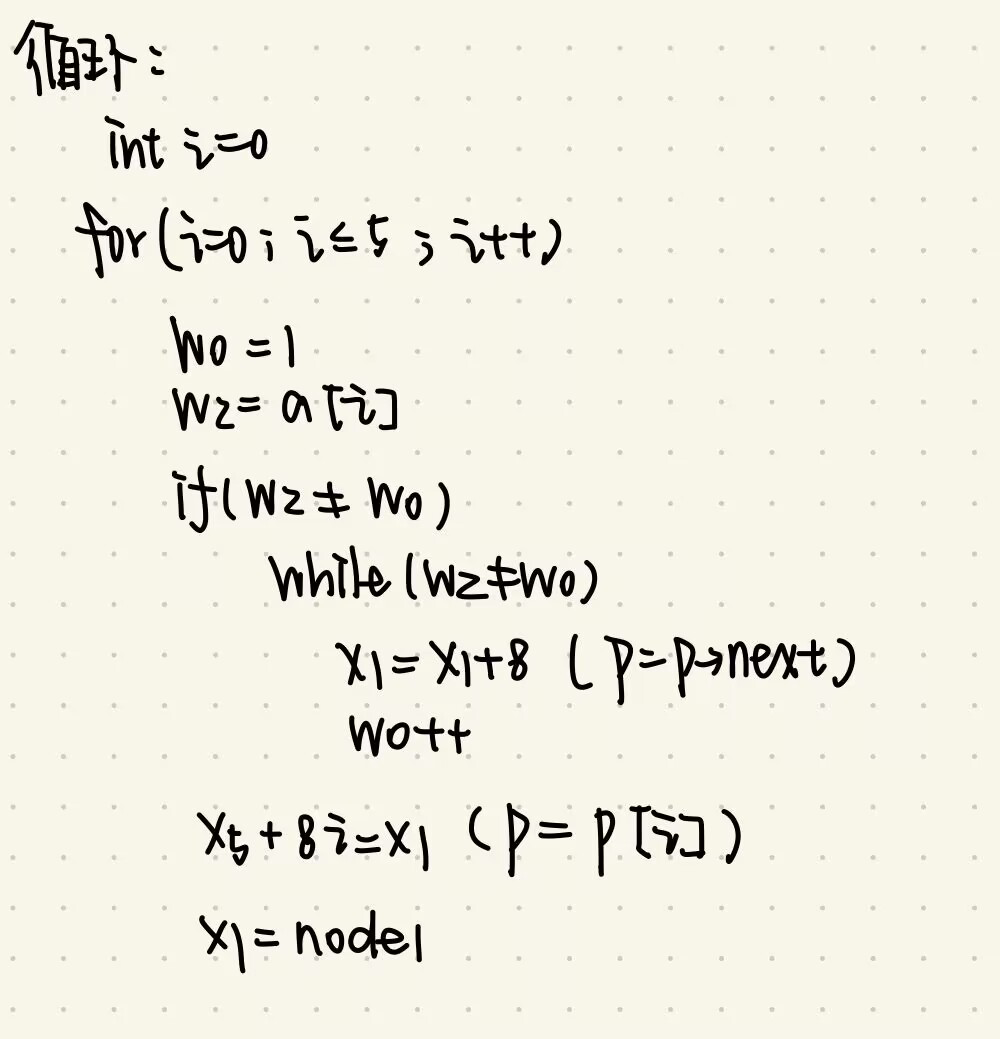 循环：
int i=0
for(i=0; i≤5; i++)
w0=1
w2=a[i]
if(w2≠w0)
while(w2≠w0)
x1=x1+8 (p=p→next)
w0++
x5+8i=x1 (p=p[i])
x1=node1